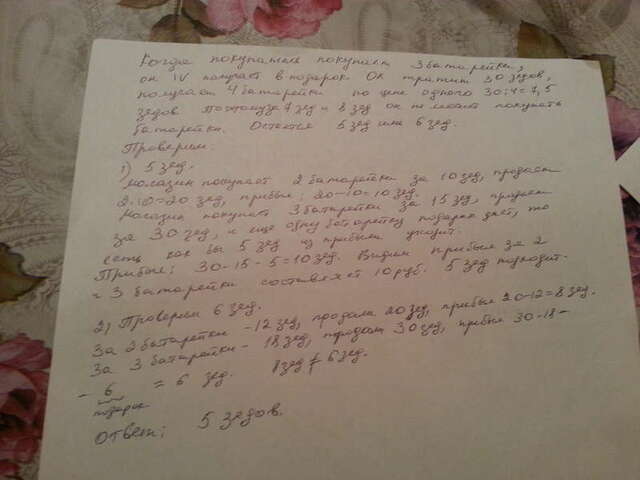 Когда покупатель покупает 3 батарейки,
он IV получает в подарок. Он тратит 30 зедов,
получает 4 батарейки по цене одного 30:4=7,5
зедов. Поэтому за 7 зед и 8 зед он не может покупать
батарейки. Остаётся 5 зед или 6 зед.
Проверим.
1) 5 зед.
Магазин покупает 2 батарейки за 10 зед, продает
2·10=20 зед, прибыль: 20-10=10 зед.
Магазин покупает 3 батарейки за 15 зед, продает
за 30 зед, и еще одну батарейку подарке дает, то
есть как бы 5 зед из прибыли уходит.
Прибыль: 30-15-5=10 зед. Видим прибыль за 2
и 3 батарейки составляет 10 руб. 5 зед подходит.
2) Проверим 6 зед.
За 2 батарейки - 12 зед, продали 20 зед, прибыль 20-12=8 зед.
За 3 батарейки - 18 зед, продали 30 зед, прибыль 30-18-
- 6 = 6 зед. 8 зед ≠ 6 зед.
подарок
Ответ: 5 зедов.